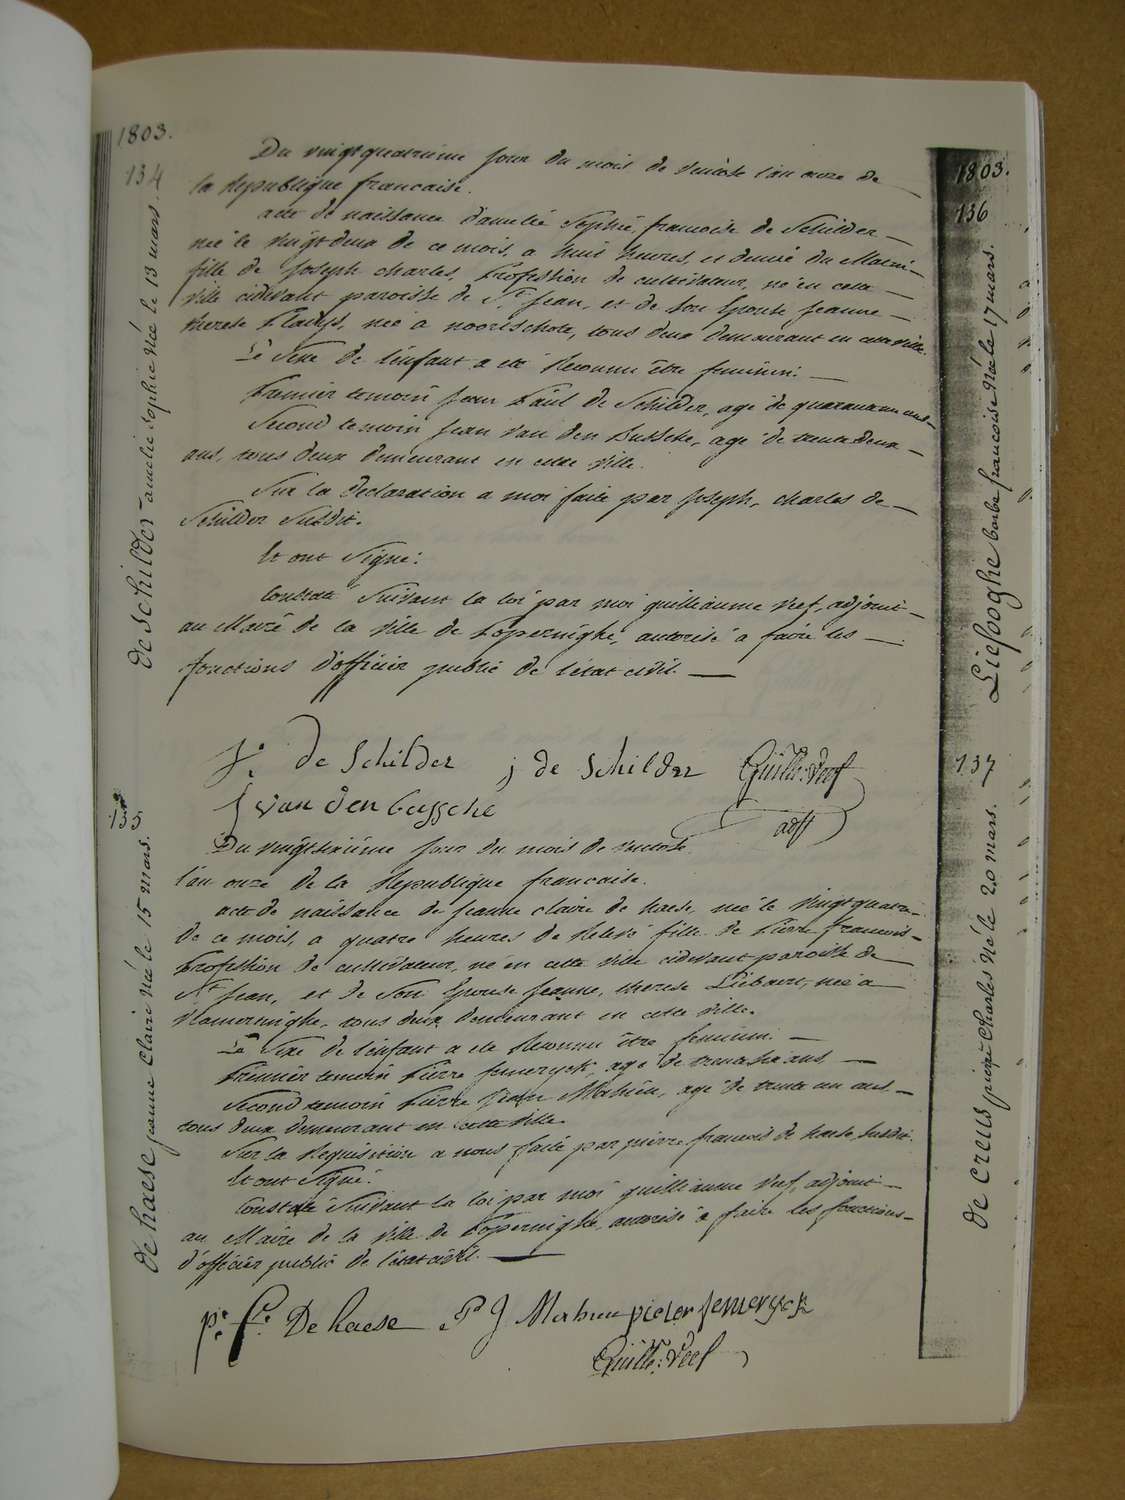 1803.
134
de Schilder amelie Sophie Née le 13 mars.
Du vingtquatrieme jour du mois de ventose l'an onze de
la Republique francaise.
acte de naissance d'amelie Sophie, francoise de Schilder
neé le vingt deux de ce mois, a huit heures, et demie du Matin
fille de Joseph charles, Profession de cultivateur, né en cette
ville cidevant paroisse de St. Jean, et de Son Epouse jeanne
therese, neé a noordschote, tous deux demeurant en cette ville.
Le Sexe de l'enfant a eté Reconnu être feminin.
Premier temoin Jean Paul de Schilder, agé de quarante ans,
Second temoin jean van den Bussche, agé de trente deux
ans, tous deux demeurant en cette ville.
Sur la declaration a moi faite par Joseph, charles de
Schilder Susdit.
Et ont Signé:
Constaté Suivant la loi par moi guilleaume veef, adjoint
au Maire de la ville de Poperinghe, autorisé a faire les
fonctions d'officier public de l'état civil.
J. de Schilder j de Schilder Guille: Veef
J van den bussche adjt
135
de haese jeanne Claire Née le 15 mars.
Du vingtsixiéme jour du mois de ventose
l'an onze de la Republique francaise.
acte de naissance de jeanne claire de haese, neé le vingtquatre
de ce mois, a quatre heures de Relevé fille de Pierre francois
Profession de cultivateur, né en cette ville cidevant paroisse de
St. Jean, et de Son Epouse jeanne, therese Liebaert, neé a
Vlamertinghe, tous deux demeurant en cette ville.
Le Sexe de l'enfant a eté Reconnu être feminin.
Premier temoin Pierre Jemeryck, agé de trentesix ans
Second temoin Pierre Jean Mahieu, agé de trente un ans
tous deux demeurant en cette ville.
Sur la Requisition a nous faite par pierre francois de haese, Susdit.
Et ont Signé.
Constaté Suivant la loi par moi guilleaume veef, adjoint
au Maire de la ville de Poperinghe, autorisé a faire les fonctions
d'officier public de l'état civil.
pe. fe. De haese P J Mahieu pieter Jemeryck
Guille: Veef
1803.
136
Liefooghe barbe francoise Née le 17 mars.
137
de creus pierre Charles Né le 20 mars.